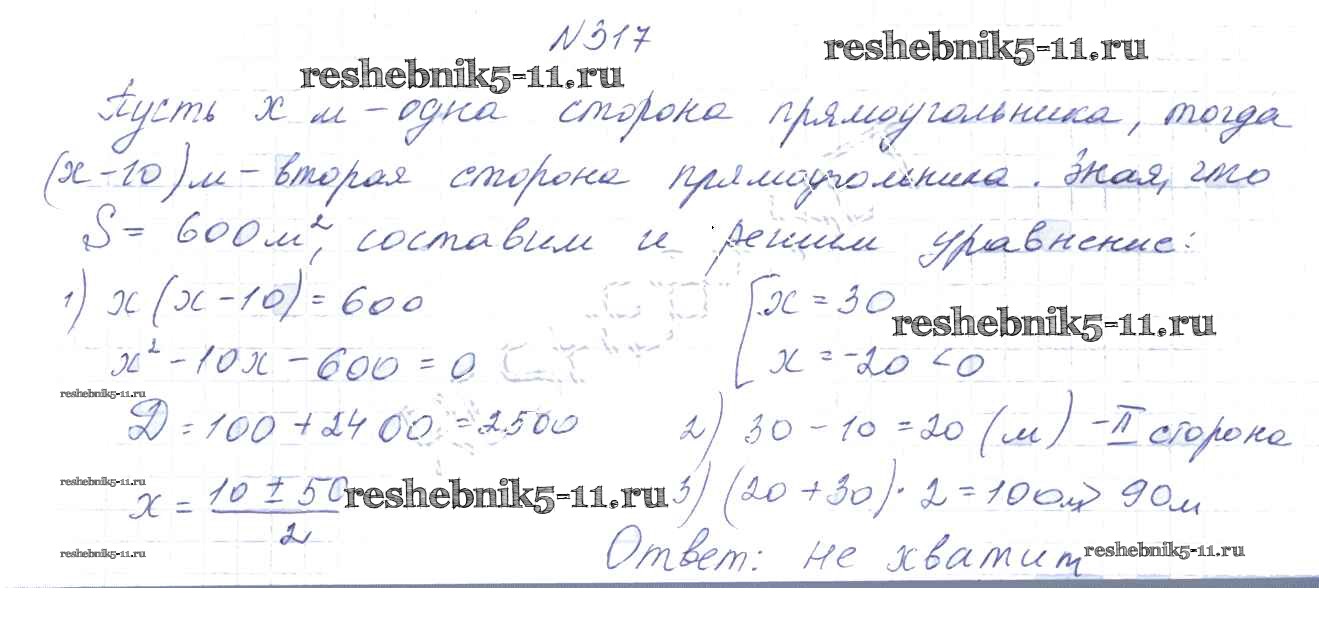 №317
reshebnik5-11.ru
reshebnik5-11.ru
Пусть x м - одна сторона прямоугольника, тогда
(x-10) м - вторая сторона прямоугольника. Зная, что
S = 600м², составим и решим уравнение:
1) x(x-10) = 600
x² - 10x - 600 = 0
reshebnik5-11.ru
D = 100 + 2400 = 2500
reshebnik5-11.ru
x = (10 ± 50)/2
reshebnik5-11.ru
reshebnik5-11.ru
[x = 30
x = -20 < 0
reshebnik5-11.ru
2) 30 - 10 = 20 (м) - II сторона
3) (20 + 30) · 2 = 100м > 90м
Ответ: не хватит
reshebnik5-11.ru